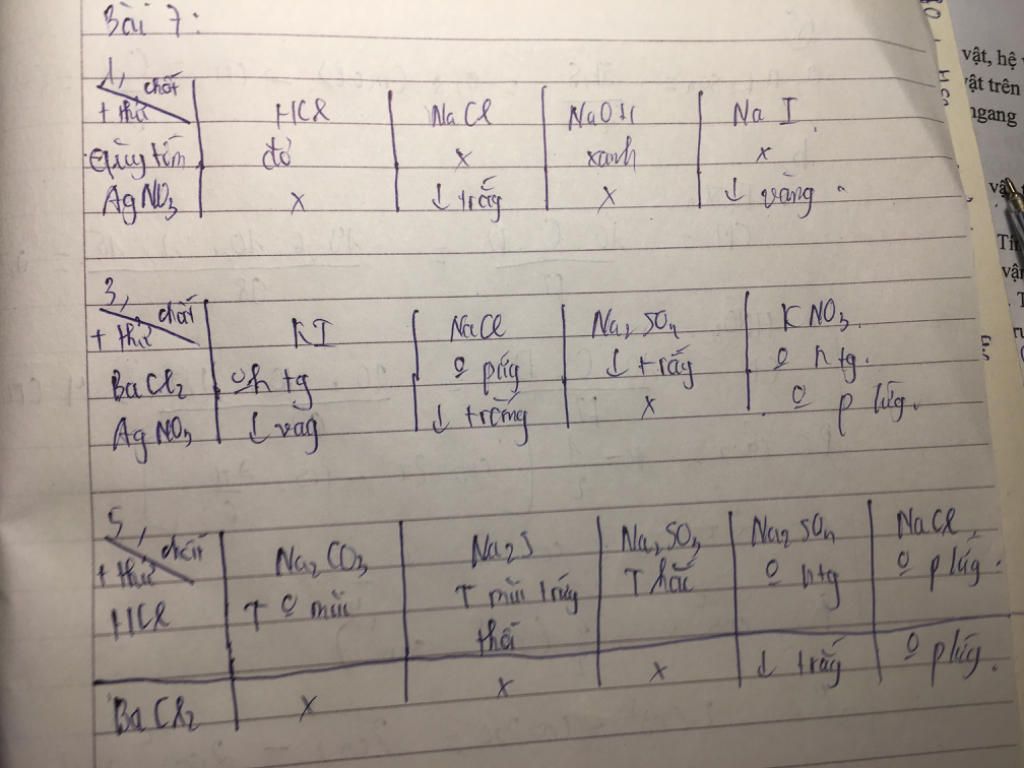 Bài 7:
1, chất
+ thử HCl NaCl NaOH NaI
Quỳ tím đỏ x xanh x
AgNO3 x ↓ trắg x ↓ vàng
3, chất
+ thử KI NaCl Na2SO4 KNO3
BaCl2 o h tg o pứg ↓ trắg o h tg.
AgNO3 ↓ vàg ↓ trắng x o p ứg.
5, chất
+ thử Na2CO3 Na2S Na2SO3 Na2SO4 NaCl
HCl ↑ o mùi ↑ mùi trứg ↑ hắc o htg o pứg.
thối
BaCl2 x x x ↓ trắg o pứg.
vật, hệ
vật trên
ngang